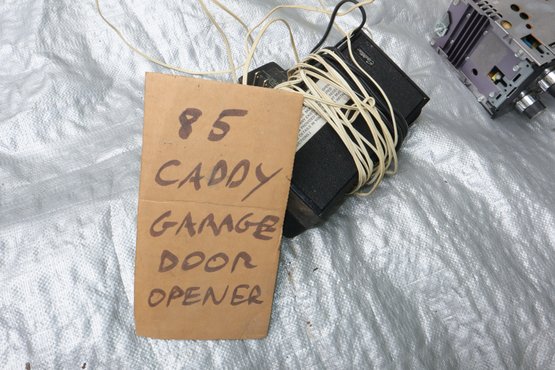 85
CADDY
GARAGE
DOOR
OPENER